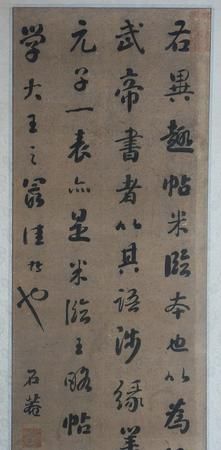 右異趣帖米臨本也以為
武帝書者以其語涉緣業
元子一表亦是米臨王略帖
学大王之最佳者也
石菴